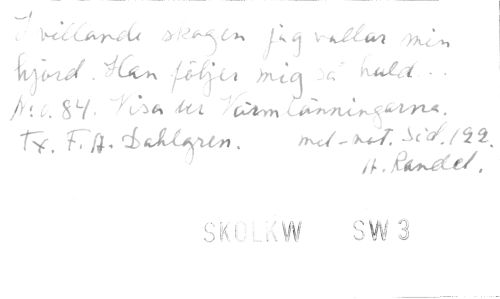 I villande skogen jag vallar min
hjord. Han följer mig så huld...
N:o. 84. Visa ur Värmlänningarna.
Tx. F. A. Dahlgren. mel-not. Sid. 122.
A. Randel.
SKOLKW SW 3